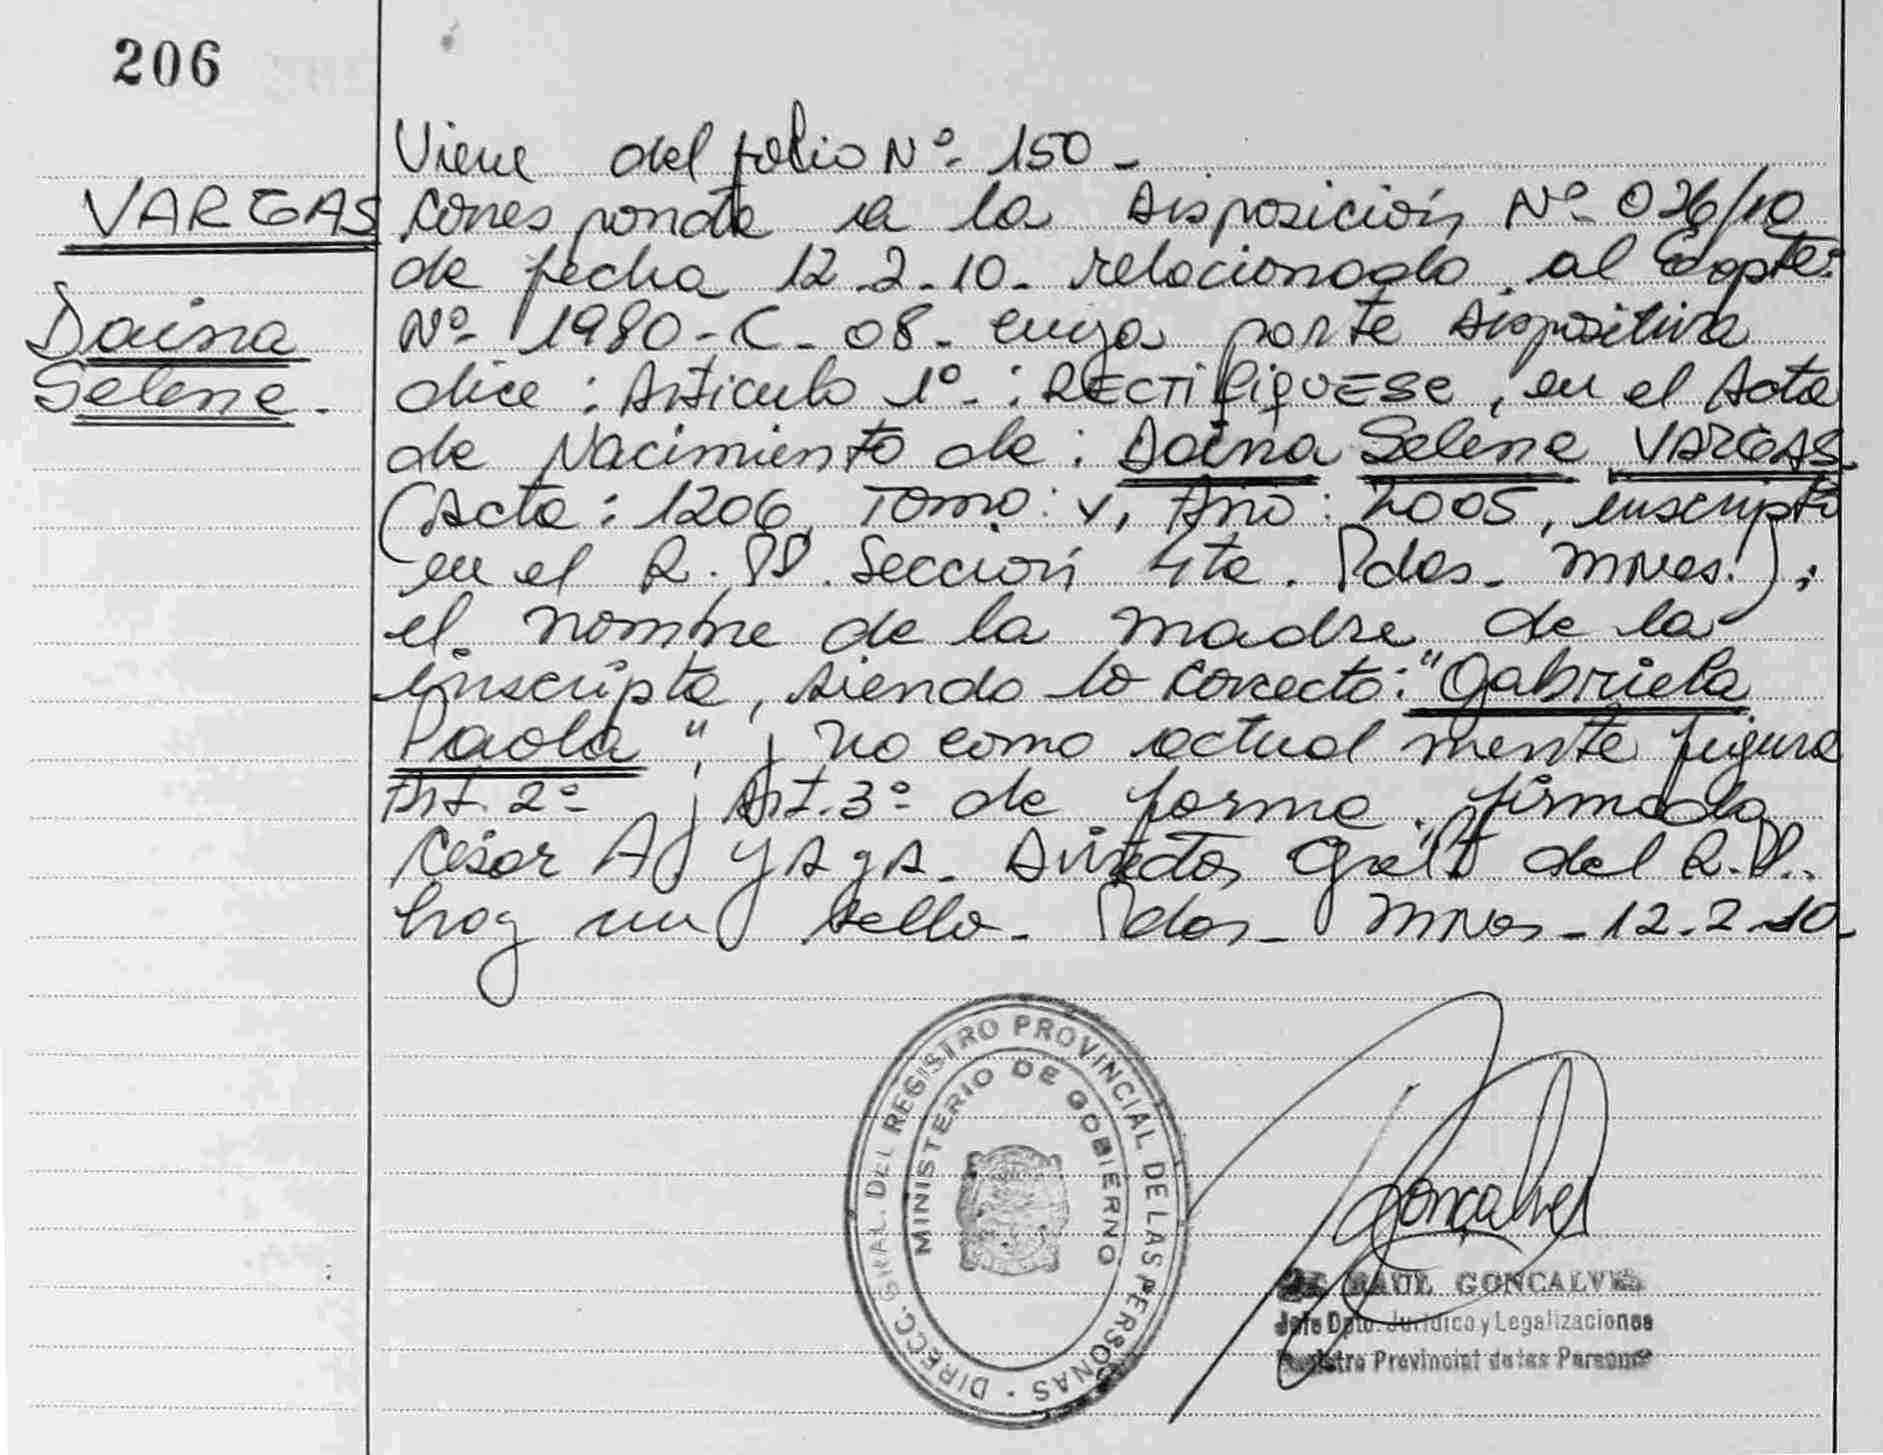 206
Viene del folio Nº 150-
VARGAS
Corresponde a la Disposición Nº 026/10
de fecha 12-2-10- relacionado al Expte:
Daina
Nº 1980-C-08- cuya parte dispositiva
Selene.
dice: Articulo 1º-: RECTifiqUESE, en el Acta
de Nacimiento de: Daina Selene VARGAS
(Acta: 1206, Tomo: V, Año: 2005, inscripta
en el R.PP. Sección 4ta. Pdas- Mnes.),
el nombre de la madre de la
inscripta, siendo lo correcto: "Gabriela
Paola" y no como actualmente figura
Art. 2º y Art. 3º de forma, firmado
César A. YAYA- Director Gral del R.P.
hay un sello- Pdas- Mnes-12-2-10-
DIRECC. GRAL. DEL REGISTRO PROVINCIAL DE LAS PERSONAS -
MINISTERIO DE GOBIERNO
Goncalves
RAUL GONCALVES
Jefe Dpto. Jurídico y Legalizaciones
Registro Provincial de las Personas